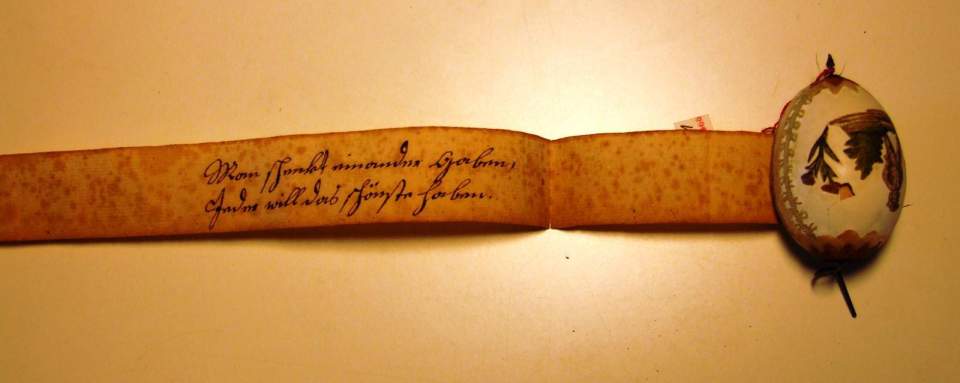 Man schenkt einander Gaben,
Jeder will das schönste haben.